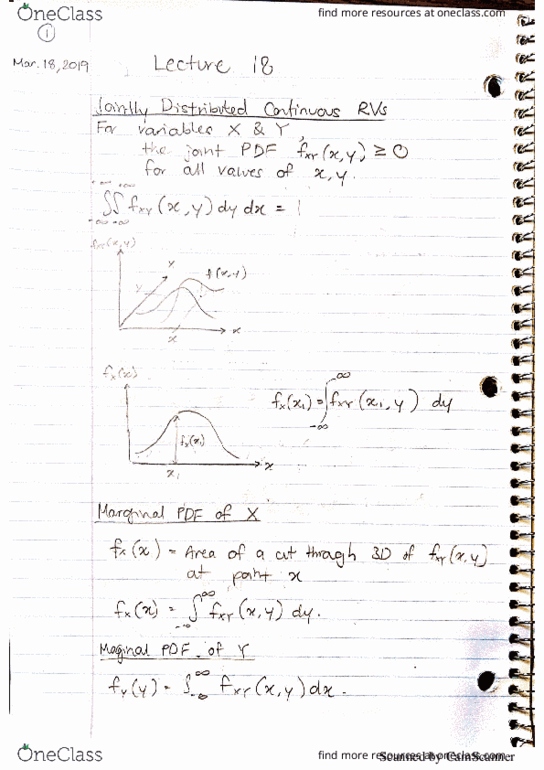 OneClass
find more resources at oneclass.com
1
Mar. 18, 2019
Lecture 18
Jointly Distributed Continuous RVs
For variables X & Y
the joint PDF f_XY(x,y) ≥ 0
for all values of x, y.
∫_{-∞}^{+∞}∫_{-∞}^{+∞} f_XY(x,y) dy dx = 1
f_XY(x,y)
x
y
f(x,y)
x
x
f_X(x)
f_X(x_1) = ∫_{-∞}^{∞} f_XY(x_1,y) dy
f_X(x_1)
x
x_1
Marginal PDF of X
f_X(x) = Area of a cut through 3D of f_XY(x,y)
at point x
f_X(x) = ∫_{-∞}^{∞} f_XY(x,y) dy.
Maginal PDF of Y
f_Y(y) = ∫_{-∞}^{∞} f_XY(x,y) dx.
OneClass
find more resources at oneclass.com
Scanned by CamScanner